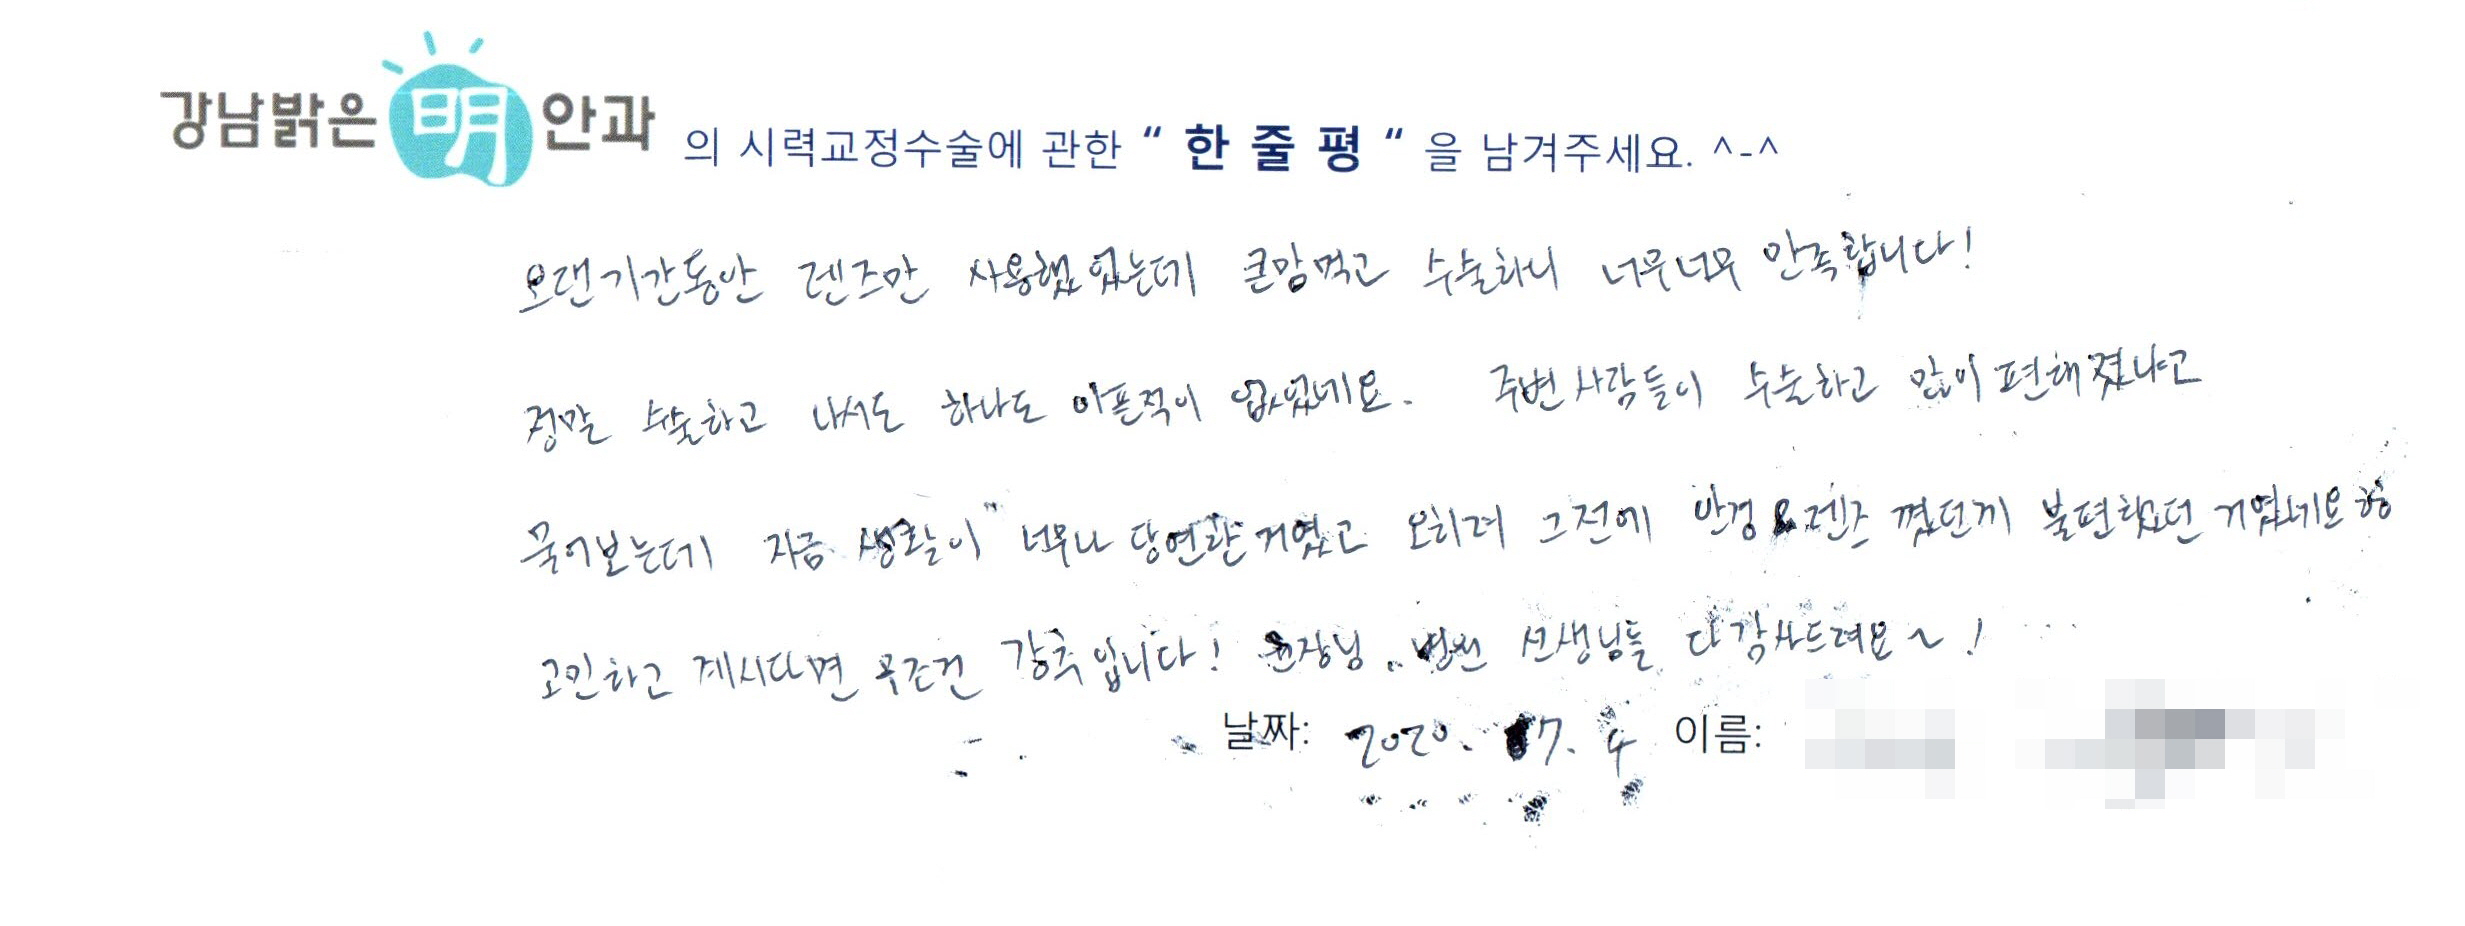 강남밝은明안과 의 시력교정수술에 관한 “ 한 줄 평 “ 을 남겨주세요. ^-^
오랜기간동안 렌즈만 사용했었는데 큰맘먹고 수술하니 너무너무 만족합니다!
정말 수술하고 나서도 하나도 아픈적이 없었네요. 주변사람들이 수술하고 많이 편해졌냐고
물어보는데 지금 생활이 너무나 당연한거였고 오히려 그전에 안경 렌즈 꼈던게 불편했던 거였네요
고민하고 계시다면 무조건 강추입니다! 원장님, 병원 선생님들 다 감사드려요~!
날짜: 2020. 7. 4 이름: